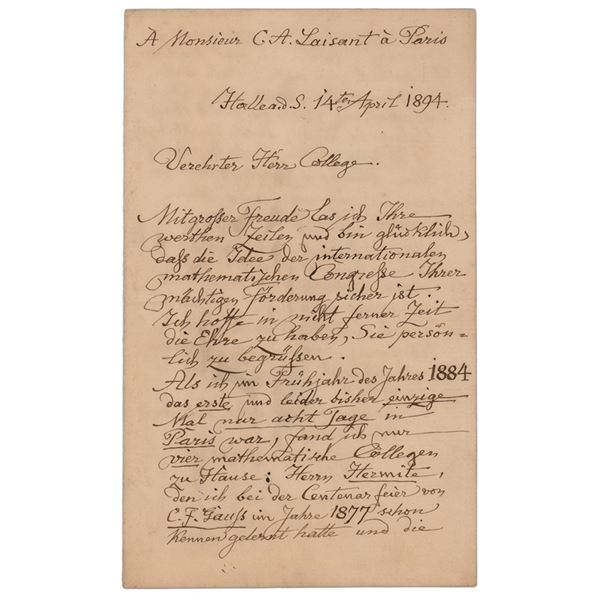 A Monsieur C. A. Laisant à Paris
Halle a. d. S. 14ten April 1894.
Verehrter Herr College.
Mit großer Freude las ich Ihre
werthen Zeilen und bin glücklich,
daß die Idee der internationalen
mathematischen Congresse Ihrer
mächtigen Förderung sicher ist.
Ich hoffe in nicht ferner Zeit
die Ehre zu haben, Sie persön=
lich zu begrüssen.
Als ich im Frühjahr des Jahres 1884
das erste und leider bisher einzige
Mal nur acht Tage in
Paris war, fand ich nur
vier mathematische Collegen
zu Hause: Herrn Hermite,
den ich bei der Centenarfeier von
C. F. Gauss im Jahre 1877 schon
kennen gelernt hatte und die